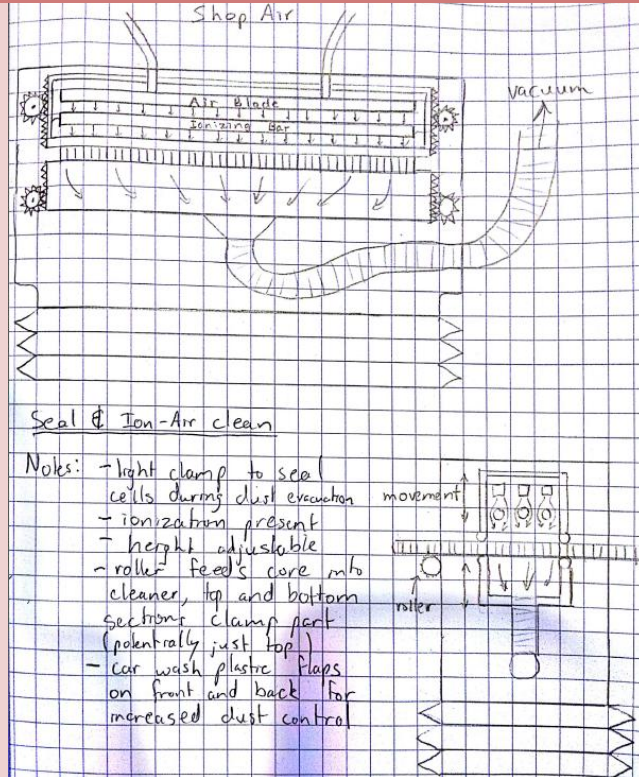 Shop Air
vacuum
Air Blade
Ionizing Bar
Seal & Ion-Air clean
Notes: - light clamp to seal
cells during dust evacuation
- ionization present
- height adjustable
- roller feeds core into
cleaner, top and bottom
sections clamp part
(potentially just top)
- car wash plastic flaps
on front and back for
increased dust control
movement
roller